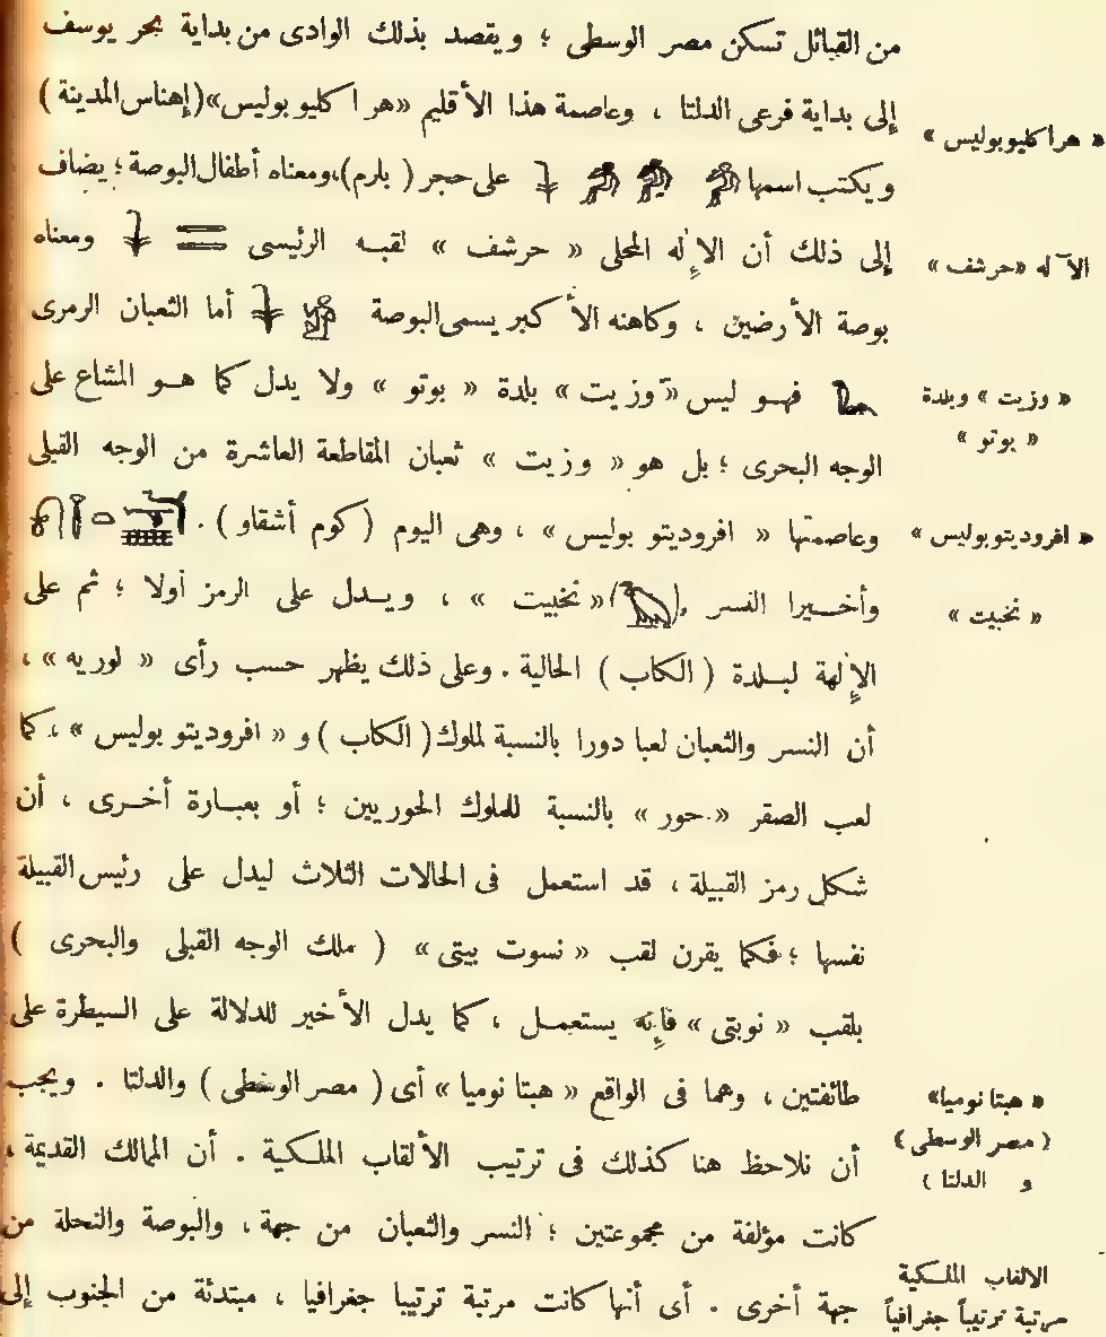 من القبائل تسكن مصر الوسطى ؛ ويقصد بذلك الوادى من بداية بحر يوسف
إلى بداية فرعى الدلتا ، وعاصمة هذا الأقليم «هراكليوبوليس»(إهناس المدينة)
« هراكليوبوليس »
ويكتب اسمها على حجر ( بلرم)،ومعناه أطفال البوصة ؛ يضاف
إلى ذلك أن الإله المحلى « حرشف » لقبه الرئيسى ومعناه
الآله «حرشف»
بوصة الأرضين ، وكاهنه الأكبر يسمى البوصة أما الثعبان الرمزى
فهو ليس «وزيت» بلدة « بوتو » ولا يدل كما هو المشاع على
« وزيت » وبلدة
« بوتو »
الوجه البحرى ؛ بل هو « وزيت » ثعبان المقاطعة العاشرة من الوجه القبلى
وعاصمتها « افروديتو بوليس » ، وهى اليوم ( كوم أشقاو ) .
« افروديتوبوليس »
وأخيرا النسر ( ) « نخبيت » ، ويدل على الرمز أولا ؛ ثم على
« نخبيت »
الإلهة لبلدة ( الكاب ) الحالية . وعلى ذلك يظهر حسب رأى « لوريه » ،
أن النسر والثعبان لعبا دورا بالنسبة لملوك ( الكاب ) و « افروديتو بوليس » ، كما
لعب الصقر « حور » بالنسبة للملوك الحوريين ؛ أو بعبارة أخرى ، أن
شكل رمز القبيلة ، قد استعمل فى الحالات الثلاث ليدل على رئيس القبيلة
نفسها ؛ فكما يقرن لقب « نسوت بيتى » ( ملك الوجه القبلى والبحرى )
بلقب « نوبتى » فإنه يستعمل ، كما يدل الأخير للدلالة على السيطرة على
طائفتين ، وهما فى الواقع « هبتا نوميا » أى ( مصر الوسطى ) والدلتا . ويجب
« هبتا نوميا»
( مصر الوسطى )
و الدلتا )
أن نلاحظ هنا كذلك فى ترتيب الألقاب الملكية . أن الممالك القديمة ،
كانت مؤلفة من مجموعتين ؛ النسر والثعبان من جهة ، والبوصة والنحلة من
جهة أخرى . أى أنها كانت مرتبة ترتيبا جغرافيا ، مبتدئة من الجنوب إلى
الالقاب الملكية
مرتبة ترتيباً جغرافياً